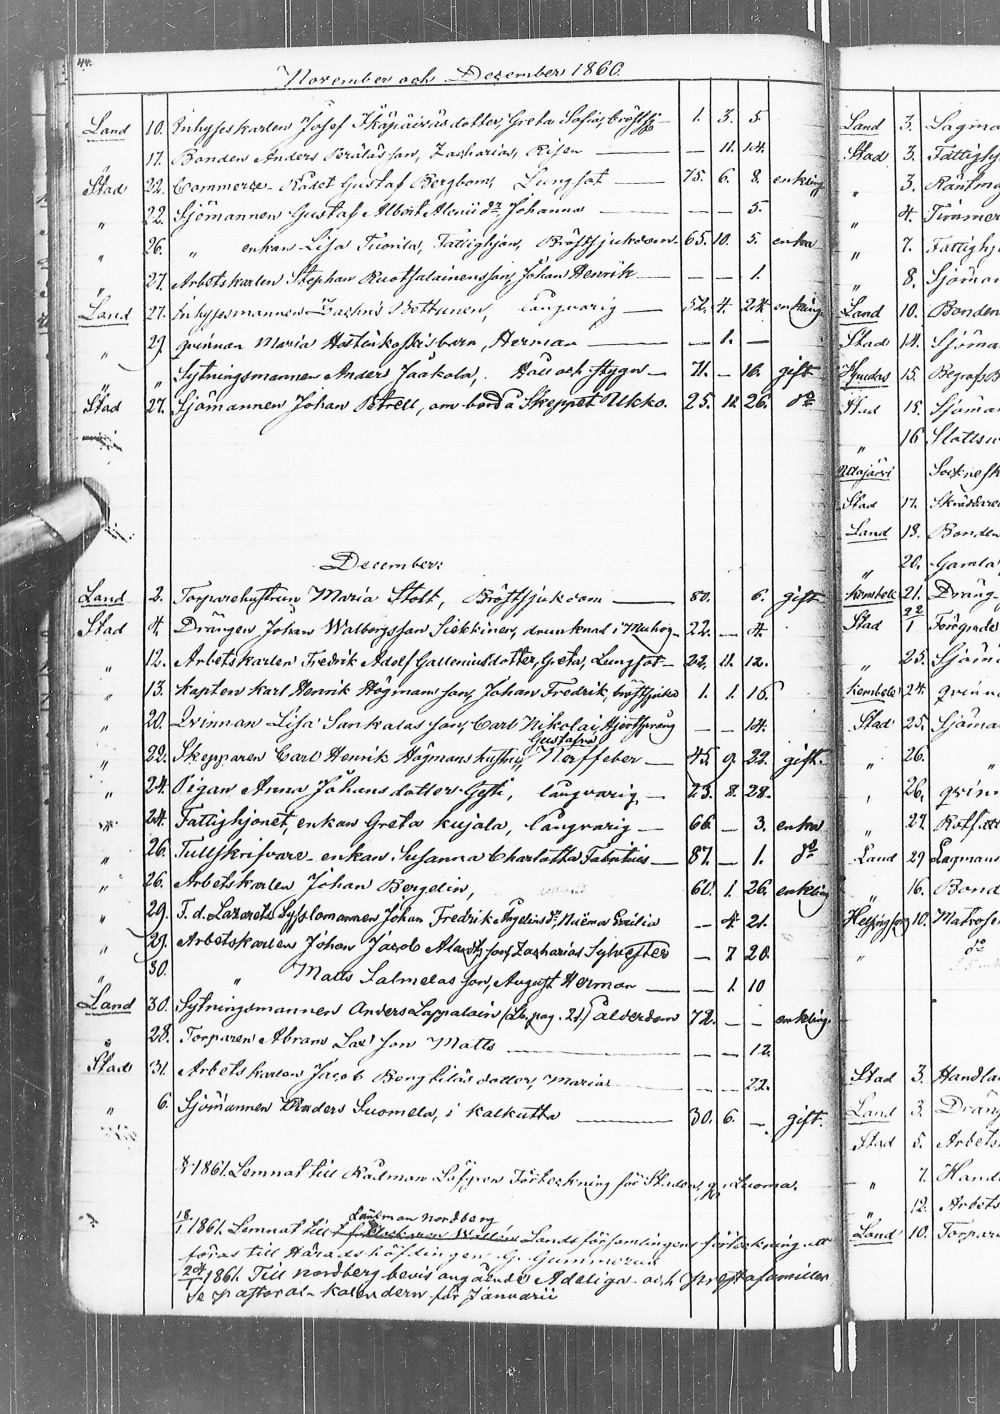 44.
November och Dezember 1860.
Land 10. Inhyseskarlen Josef dotter, Greta Sofia, 1. 3. 5
„ 17. Bonden Anders son, Zacharias, Risen — — 11. 14.
Stad 22. Commerce-Rådet Gustaf Bergbom, Lungsot — 75. 6. 8. enkling
„ 22. Sjömannen Gustaf Albert dr Johanna — — — 5.
„ 26. „ enkan Lisa Tuorila, Fattighjon, Bröstsjukdom. 65. 10. 5. enka
„ 27. Arbetskarlen Stephan Ruotsalainens son, Johan Henrik — — — 1.
Land 27. Inhysesmannen Bottunen, långvarig — 52. 4. 24. enkling
„ 29. qvinnan Maria barn, Herman — — 1. —
„ „ Sytningsmannen Anders Jaakola, Håll och Stygn — 71. — 16. gift
Stad 27. Sjömannen Johan Petrell, om bord å Skeppet Ukko. 25. 11. 26. do
December:
Land 2. Torparehustrun Maria Stolt, Bröstsjukdom — 80. 6. gift
Stad 4. Drängen Johan Walborgsson Siekkinen, drunknad i Muhos — 22. — 4.
„ 12. Arbetskarlen Fredrik Adolf Gallenius dotter, Greta, Lungsot — 22. 11. 12.
„ 13. Kapten Karl Henrik Högmans son, Johan Fredrik, bröstsjukd 1. 1. 16.
„ 20. Qvinnan Lisa Sankalas son, Carl Nikolai, — — 14.
Gustafva
„ 22. Skepparen Carl Henrik Högmans hustru, Nerffeber — 45. 9. 22. gift.
„ 24. Pigan Anna Johansdotter långvarig, — 23. 8. 28.
„ 24. Fattighjonet, enkan Greta Kujala, långvarig — 66. — 3. enka
„ 26. Tullskrifvare-enkan Susanna Charlotta Fabritius — 87. — 1. do
„ 26. Arbetskarlen Johan Bergelin, 60. 1. 26. enkling
„ 29. T. d. Lazarets Sysslomannen Johan Fredrik dr Naëma Emilia — 4. 21.
„ 29. Arbetskarlen Johan Jacob son, Zacharias Sylvester — 7 20.
„ 30. „ Matts Salmelas son, August Herman — — 1. 10
Land 30. Sytningsmannen Anders Lappalain (Lb. pag. 21) Ålderdom 72. — — enkling.
„ 28. Torparen Abram son Matts — — — 12.
Stad 31. Arbetskarlen Jacob dotter, Maria — — 22.
„ 6. Sjömannen Anders Suomela, i Kalkutta — 30. 6. — gift.
1861. Lemnat till Rådman Förteckning för Staden,
Länsman Nordberg
18/1 1861. Lemnat till Landsförsamlingens förteckning att
föras till Häradshöfdingen G. Gummerus
24/1 1861. Till Nordberg bevis angående Adeliga- och Prestafamiller
Se pastoral-kalendern för Januarii
Land 3. Lagma
Stad 3. Fattighj
„ 3. Rånma
„ 4. Timmer
„ 7. Fattighj
„ 8. Sjöman
Land 10. Bonden
Stad 14. Sjöma
15. Begrafs
Stad 15. Sjöma
„ 16
Utajärvi Socknesk
Stad 17. Skräddare
Land 18. Bonden
„ 20. Gamla
Kembele 21. Dräng
Stad
„ 25. Sjöm
Kembele 24 qvinn
Stad 25. Sjöma
„ 26. „
„ 26. qvinn
„ 27.
Land 29 Lagmans
„ 16. Bond
Helsingfors 10. Matrosen
„ do
Stad 3. Handla
Land 3. Dräng
Stad 5. Arbets
„ 7. Hand
„ 12. Arbets
Land 10. Torpar